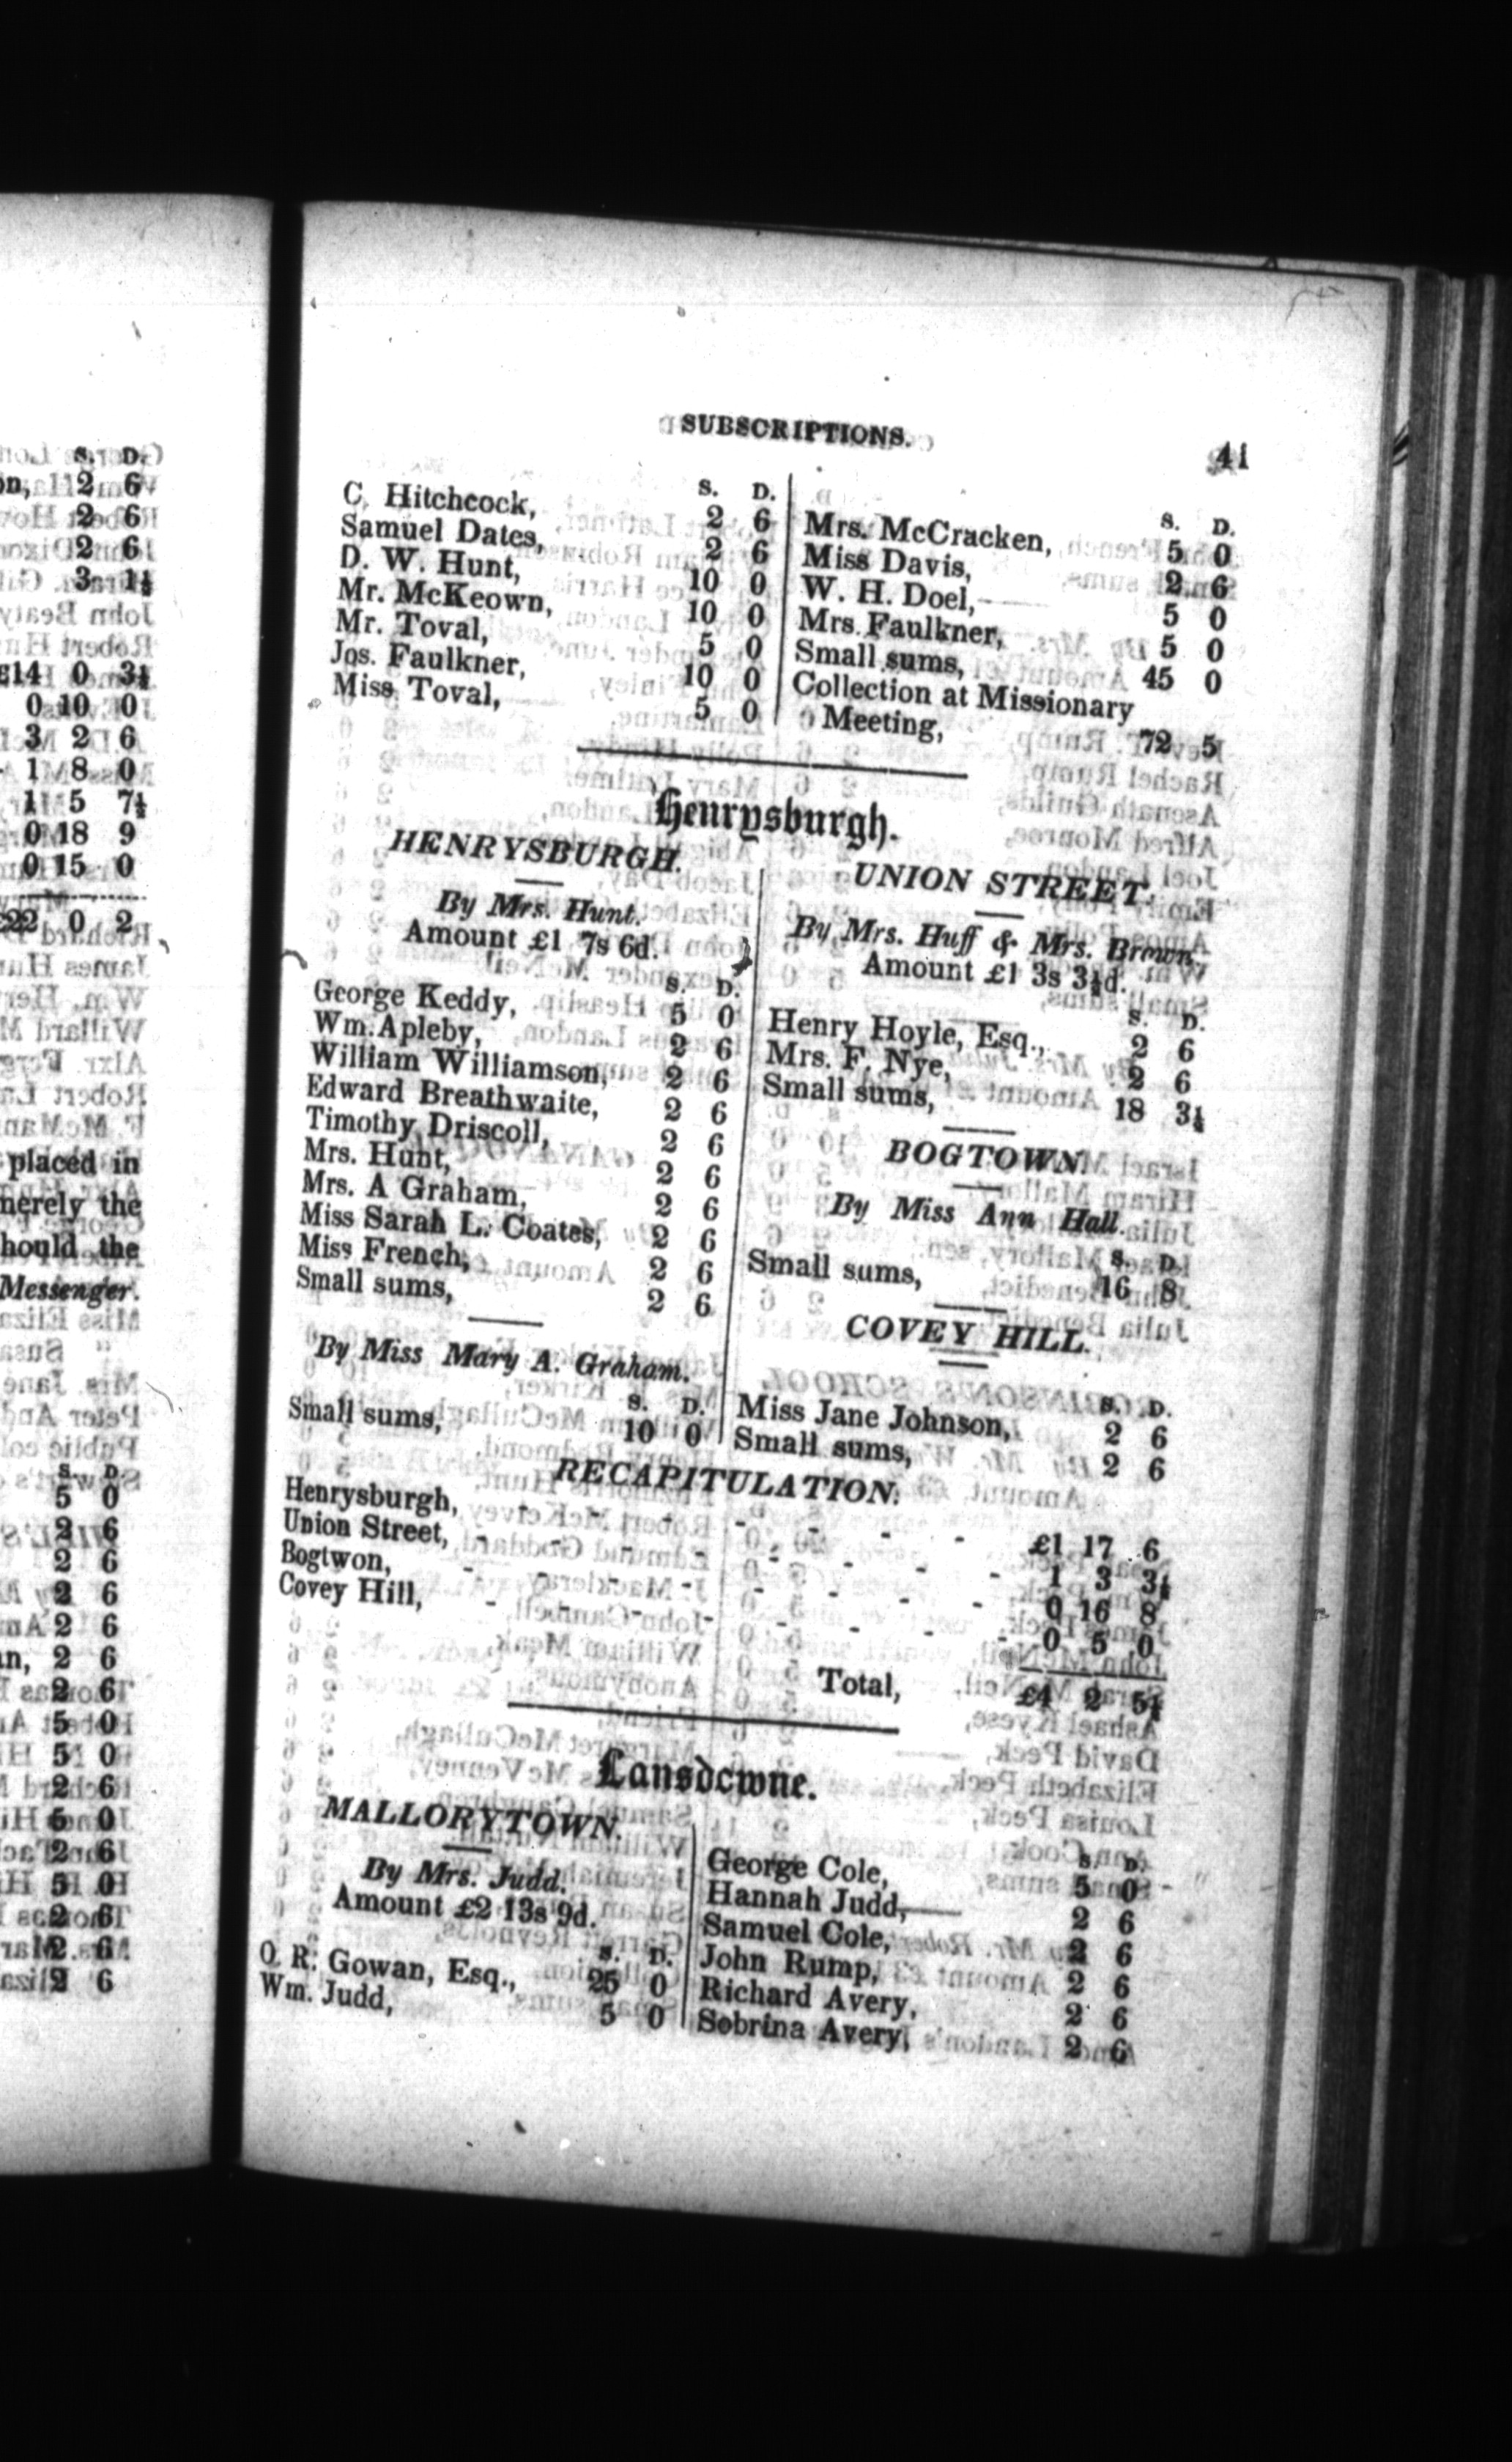 S. D.
2 6
2 6
2 6
3 1½
14 0 3½
0 10 0
3 2 6
1 8 0
1 5 7½
0 18 9
0 15 0
£22 0 2
placed in
the
the
Messenger.
S. D.
5 0
2 6
2 6
2 6
2 6
2 6
2 6
5 0
5 0
2 6
5 0
2 6
5 0
2 6
2 6
2 6
SUBSCRIPTIONS. 41
S. D.
C. Hitchcock, 2 6
Samuel Dates, 2 6
D. W. Hunt, 10 0
Mr. McKeown, 10 0
Mr. Toval, 5 0
Jos. Faulkner, 10 0
Miss Toval, 5 0
S. D.
Mrs. McCracken, 5 0
Miss Davis, 2 6
W. H. Doel, 5 0
Mrs. Faulkner, 5 0
Small sums, 45 0
Collection at Missionary
Meeting, 72 5
Henrysburgh.
HENRYSBURGH.
By Mrs. Hunt.
Amount £1 7s 6d.
S. D.
George Keddy, 5 0
Wm. Apleby, 2 6
William Williamson, 2 6
Edward Breathwaite, 2 6
Timothy Driscoll, 2 6
Mrs. Hunt, 2 6
Mrs. A Graham, 2 6
Miss Sarah L. Coates, 2 6
Miss French, 2 6
Small sums, 2 6
By Miss Mary A. Graham.
S. D.
Small sums, 10 0
UNION STREET.
By Mrs. Huff & Mrs. Brown.
Amount £1 3s 3½d.
S. D.
Henry Hoyle, Esq., 2 6
Mrs. F. Nye, 2 6
Small sums, 18 3½
BOGTOWN.
By Miss Ann Hall.
S. D.
Small sums, 16 8
COVEY HILL.
S. D.
Miss Jane Johnson, 2 6
Small sums, 2 6
RECAPITULATION.
Henrysburgh, - - - - £1 17 6
Union Street, - - - - 1 3 3½
Bogtwon, - - - - 0 16 8
Covey Hill, - - - - 0 5 0
Total, £4 2 5½
Lansdowne.
MALLORYTOWN.
By Mrs. Judd.
Amount £2 13s 9d.
S. D.
O. R. Gowan, Esq., 25 0
Wm. Judd, 5 0
S. D.
George Cole, 5 0
Hannah Judd, 2 6
Samuel Cole, 2 6
John Rump, 2 6
Richard Avery, 2 6
Sobrina Avery, 2 6